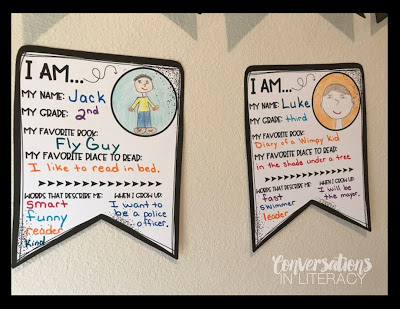 I AM...
MY NAME: Jack
MY GRADE: 2nd
MY FAVORITE BOOK:
Fly Guy
MY FAVORITE PLACE TO READ:
I like to read in bed.
WORDS THAT DESCRIBE ME:
smart
funny
reader
kind
WHEN I GROW UP:
I want to
be a police
officer.
I AM...
MY NAME: Luke
MY GRADE: third
MY FAVORITE BOOK:
Diary of a Wimpy kid
MY FAVORITE PLACE TO READ:
in the shade under a tree
WORDS THAT DESCRIBE ME:
fast
swimmer
leader
WHEN I GROW UP:
I will be
the major.
Conversations
IN LITERACY